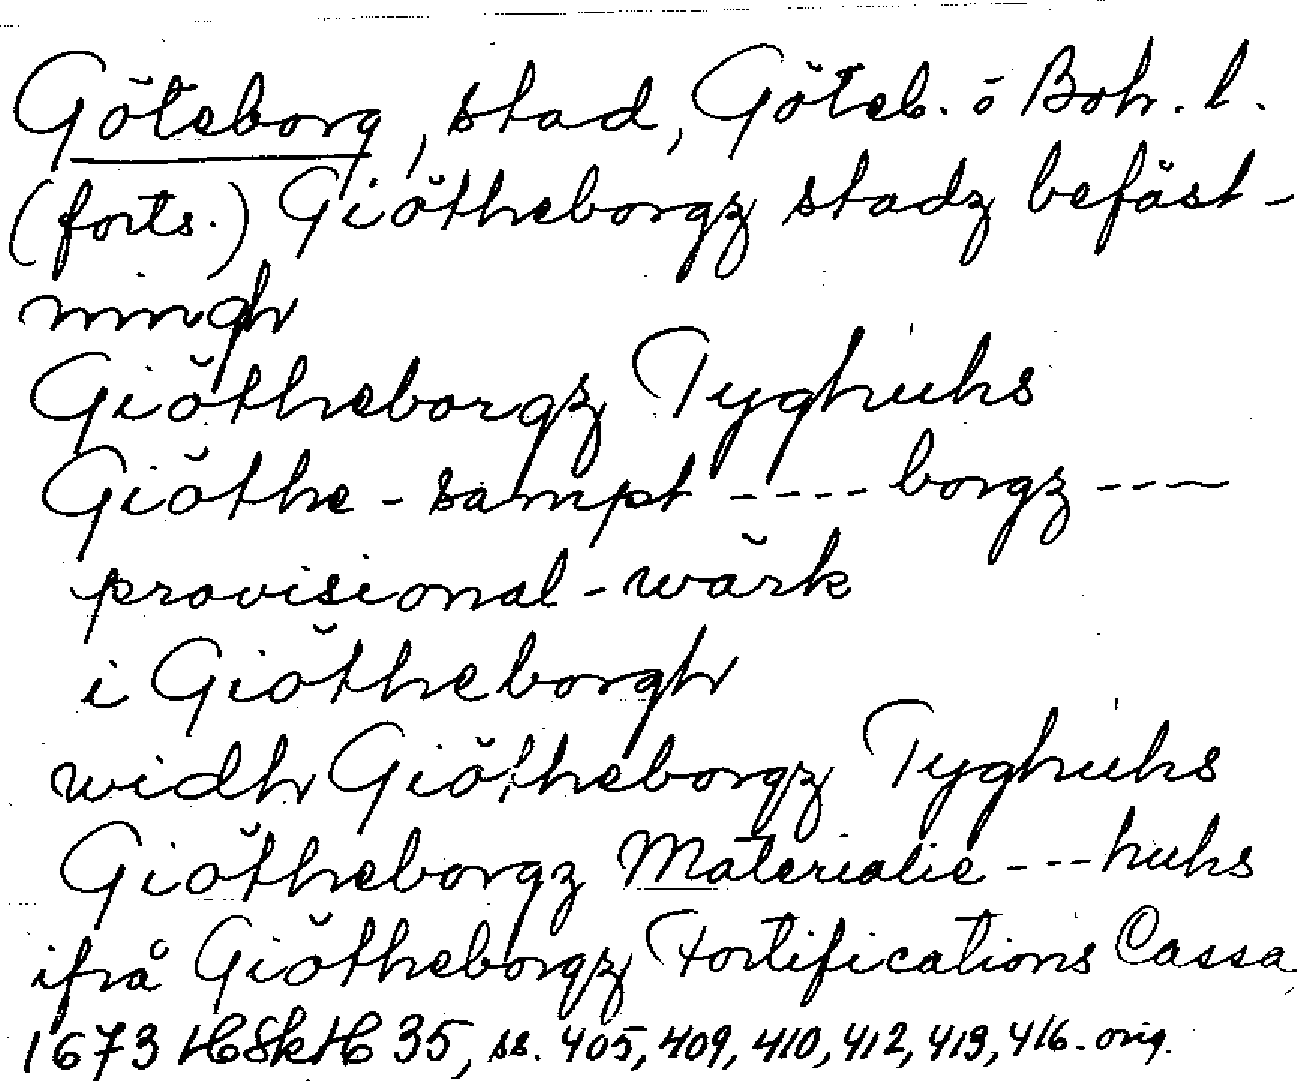 Göteborg, stad, Göteb. o Boh. l.
(forts.) Giötheborgz stadz befäst-
ningh
Giötheborgz Tyghuhs
Giöthe - sampt ---- borgz ----
provisional - wärk
i Giötheborgh
widh Giötheborgz Tyghuhs
Giötheborgz Materialie --- huhs
ifrå Giötheborgz Fortifications Cassa
1673 HSkH 35, ss. 405, 409, 410, 412, 413, 416. orig.